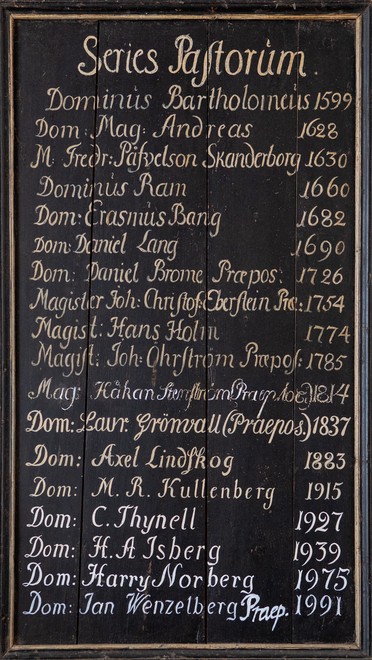 Series Paſtorům.
Dominůs Bartholomeůs 1599
Dom: Mag: Andreas 1628
M: Fredr: Påfvelson Skanderborg 1630
Dominůs Ram 1660
Dom: Erasmůs Bang 1682
Dom: Daniel Lang 1690
Dom: Daniel Brome Præpos: 1726
Magister Joh: Christof: Eberſtein Præ: 1754
Magist: Hans Holm 1774
Magiſt: Joh: Ohrſtröm Præpoſ: 1785
Mag: Håkan Præp 1814
Dom: Laur. Grönvall (Præpos.) 1837
Dom: Axel Lindſkog 1883
Dom: M. R. Kullenberg 1915
Dom: C. Thynell 1927
Dom: H. A Isberg 1939
Dom: Harry Norberg 1975
Dom: Jan Wenzelberg Præp. 1991